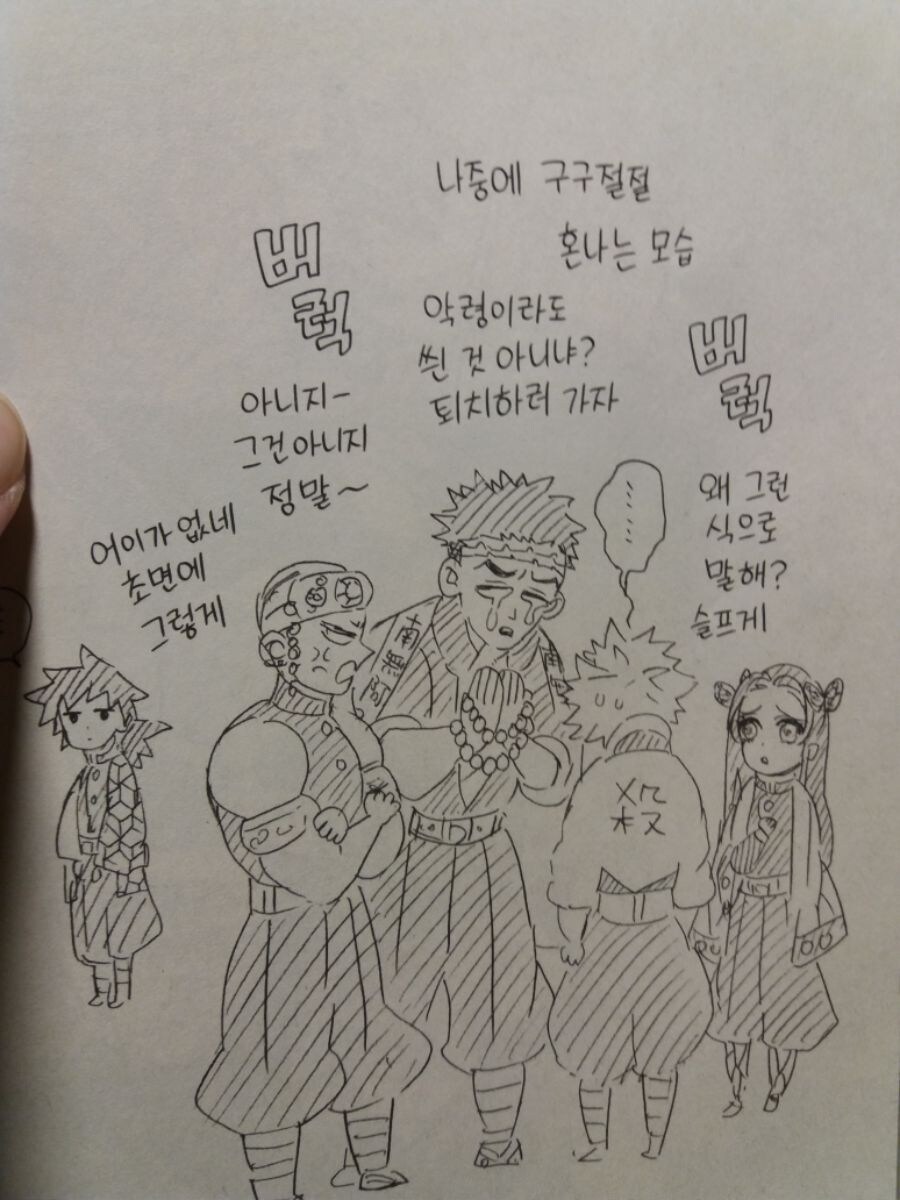 나중에 구구절절
혼나는 모습
버
럭
아니지-
그건아니지
정말~
악령이라도
씐 것 아니냐?
퇴치하러 가자
버
럭
왜 그런
식으로
말해?
슬프게
어이가 없네
초면에
그렇게
殺